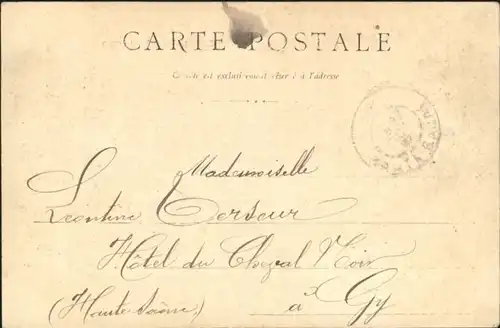 CARTE POSTALE
Ce côté est exclusivement réservé à l'adresse
Mademoiselle
Léontine Terseur
Hôtel du Cheval Noir
à Gy
(Haute-Saône)